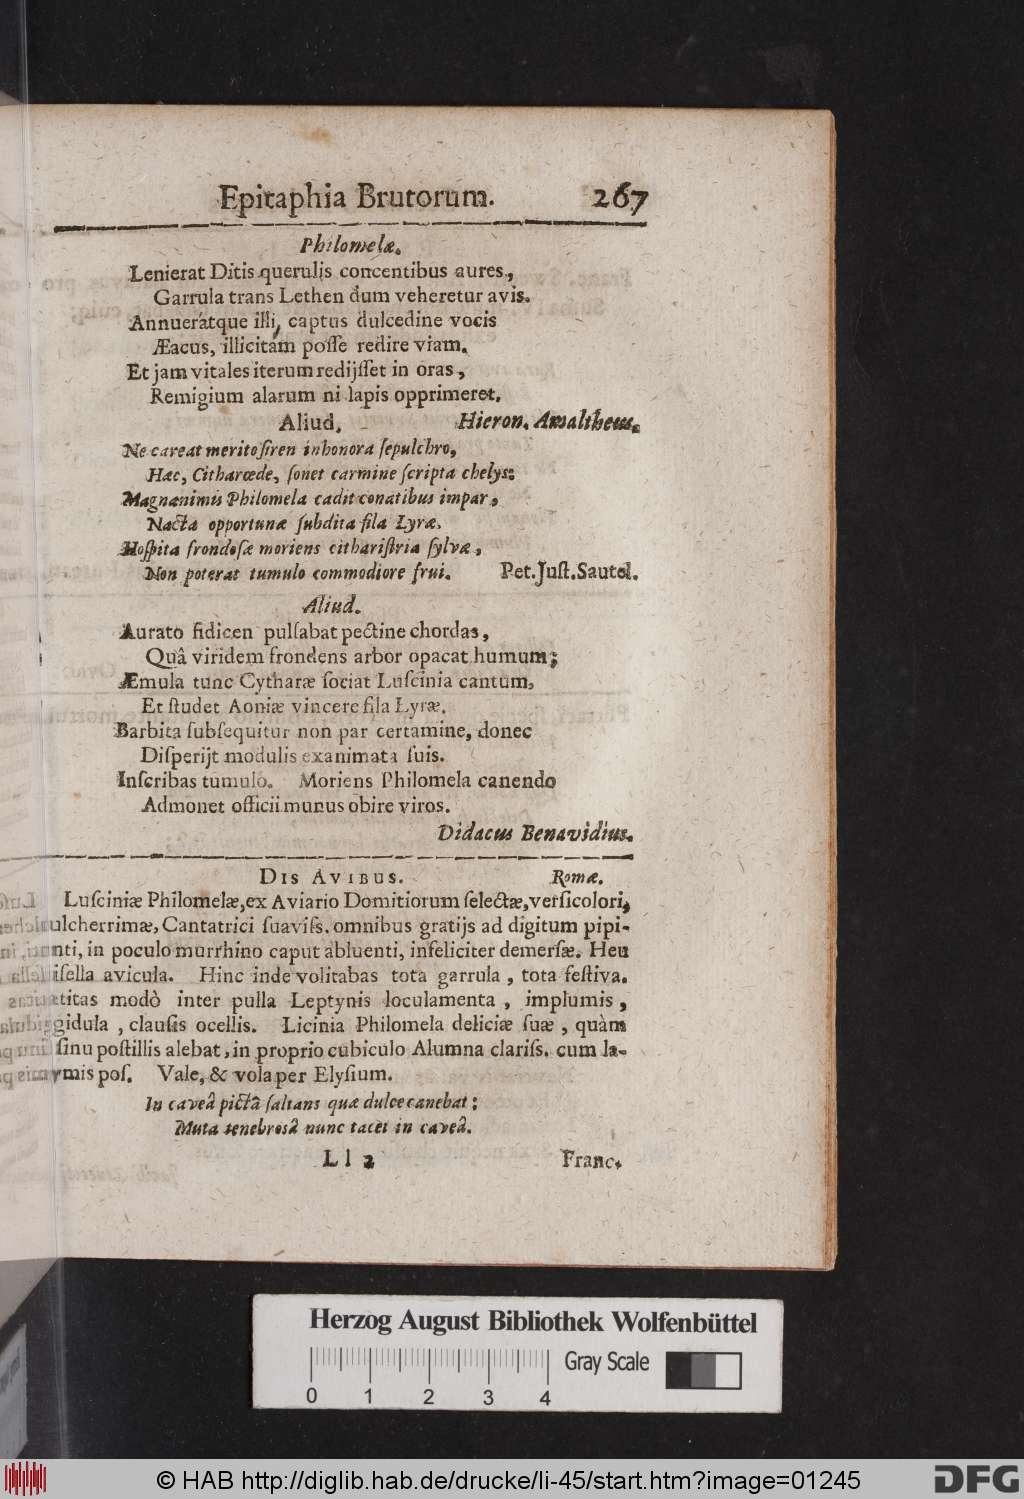 Epitaphia Brutorum. 267
Philomelæ.
Lenierat Ditis querulis concentibus aures,
Garrula trans Lethen dum veheretur avis.
Annuerátque illi, captus dulcedine vocis
Æacus, illicitam posse redire viam.
Et jam vitales iterum redijsset in oras,
Remigium alarum ni lapis opprimeret.
Aliud. Hieron. Amaltheus.
Ne careat merito siren inhonora sepulchro,
Hac, Citharœde, sonet carmine scripta chelys:
Magnanimis Philomela cadit conatibus impar,
Nacta opportunæ subdita fila Lyræ.
Hospita frondosæ moriens citharistria sylvæ,
Non poterat tumulo commodiore frui. Pet. Just. Sautel.
Aliud.
Aurato fidicen pulsabat pectine chordas,
Quâ viridem frondens arbor opacat humum;
Æmula tunc Cytharæ sociat Luscinia cantum,
Et studet Aoniæ vincere fila Lyræ.
Barbita subsequitur non par certamine, donec
Disperijt modulis exanimata suis.
Inscribas tumulo. Moriens Philomela canendo
Admonet officii munus obire viros.
Didacus Benavidius.
DIS AVIBUS. Romæ.
Lusciniæ Philomelæ, ex Aviario Domitiorum selectæ, versicolori,
ulcherrimæ, Cantatrici suaviss. omnibus gratijs ad digitum pipi-
nti, in poculo murrhino caput abluenti, infeliciter demersæ. Heu
isella avicula. Hinc inde volitabas tota garrula, tota festiva.
titas modò inter pulla Leptynis loculamenta, implumis,
gidula, clausis ocellis. Licinia Philomela deliciæ suæ, quàm
sinu postillis alebat, in proprio cubiculo Alumna clariss. cum la-
ymis pos. Vale, & vola per Elysium.
In caveâ pictâ saltans quæ dulce canebat:
Muta tenebrosâ nunc tacet in caveâ.
Ll 2 Franc.
Herzog August Bibliothek Wolfenbüttel
Gray Scale
0 1 2 3 4
© HAB http://diglib.hab.de/drucke/li-45/start.htm?image=01245
DFG